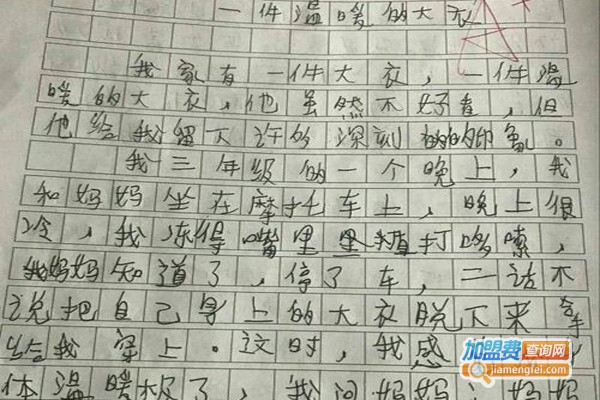 一件温暖的大衣
我家有一件大衣，一件温
暖的大衣，他虽然不好看，但
他给我留下许多深刻的印象。
我三年级的一个晚上，我
和妈妈坐在摩托车上，晚上很
冷，我冻得嘴里直打哆嗦，
我妈妈知道了，停了车，二话不
说把自己身上的大衣脱下来
给我穿上。这时，我感
体温暖极了，我问妈妈：妈妈
加盟费查询网
jiamengfei.com